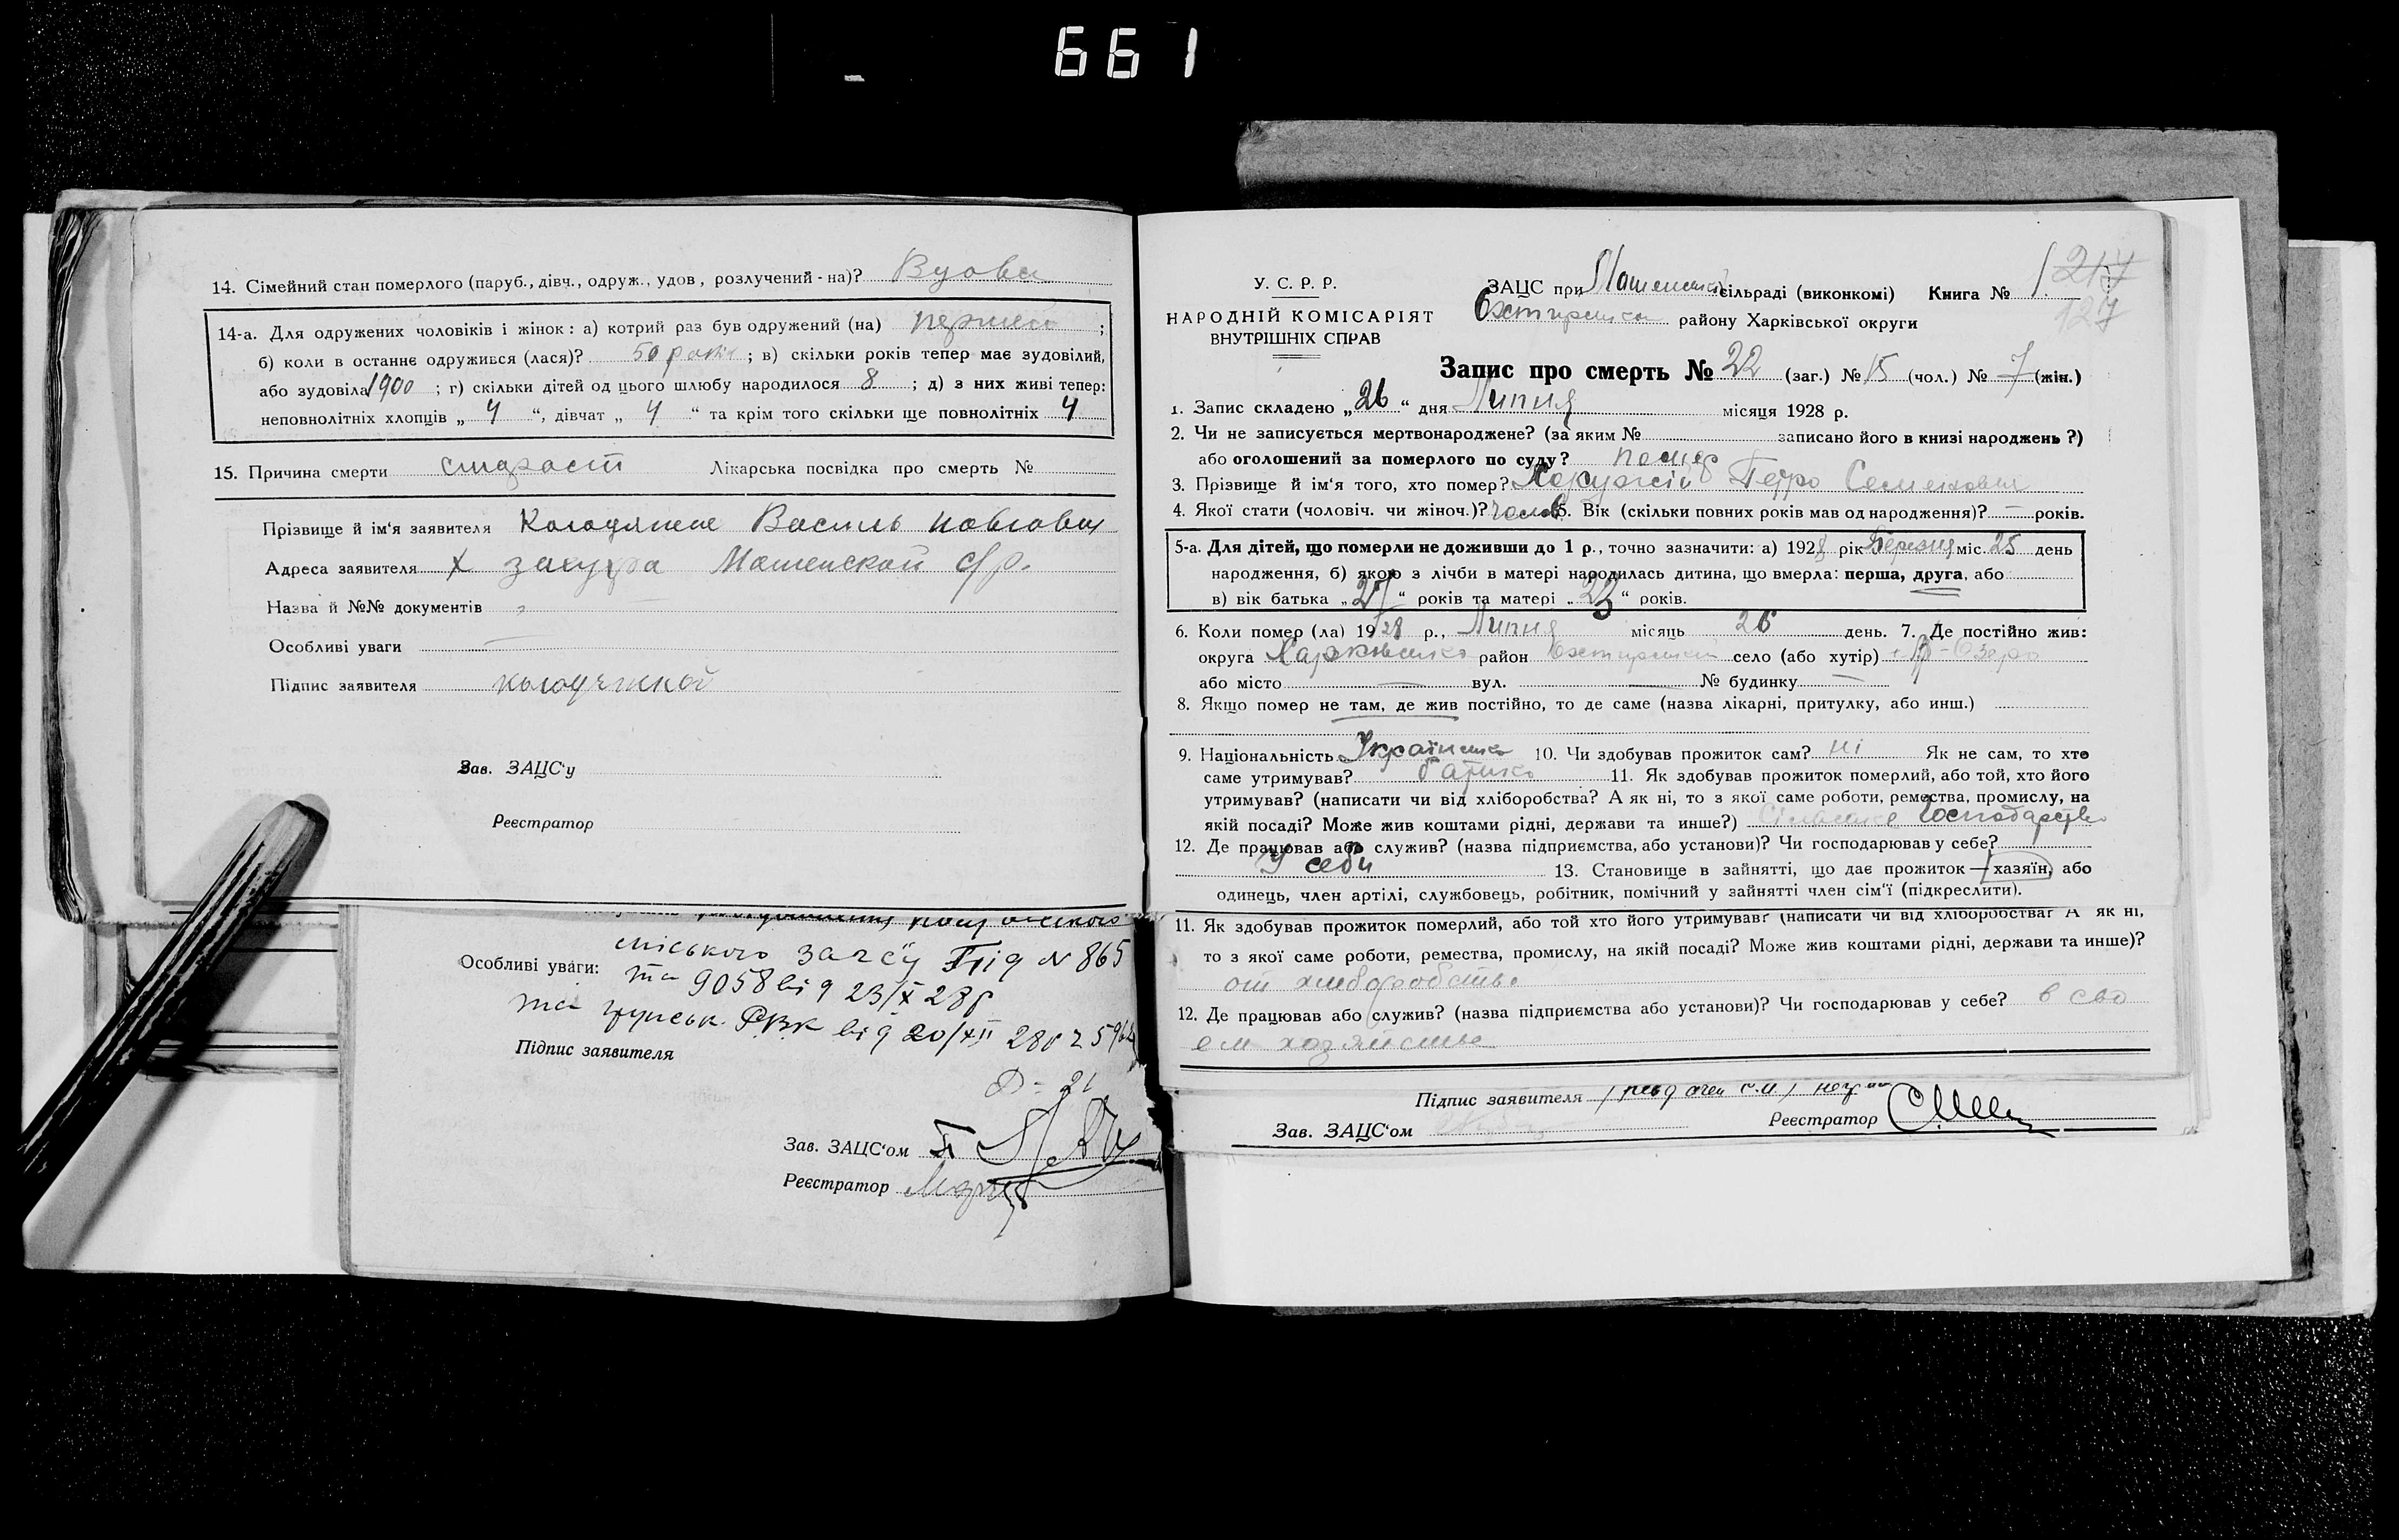 661
14. Сімейний стан померлого (паруб., дівч., одруж., удов, розлучений-на)? Вдова
14-а. Для одружених чоловіків і жінок: а) котрий раз був одружений (на) ;
б) коли в останнє одружився (лася)? 50 ; в) скільки років тепер має зудовілий,
або зудовіла 1900 ; г) скільки дітей од цього шлюбу народилося 8 ; д) з них живі тепер:
неповнолітніх хлопців „ 4 “, дівчат „ 4 “ та крім того скільки ще повнолітніх 4
15. Причина смерти старост Лікарська посвідка про смерть №
Прізвище й ім'я заявителя Василь
Адреса заявителя х
Назва й №№ документів
Особливі уваги
Підпис заявителя
Зав. ЗАЦС'у
Реєстратор
міського загсу № 865
Особливі уваги: та 9058 від 23/X 28р
та РВК від 20/XII 28р
Підпис заявителя
Зав. ЗАЦС'ом
Реєстратор
У. С. Р. Р.
НАРОДНІЙ КОМІСАРІЯТ
ВНУТРІШНІХ СПРАВ
ЗАЦС при сільраді (виконкомі) Книга № 1. 217
району Харківської округи 127
Запис про смерть № 22 (заг.) № 15 (чол.) № 7 (жін.)
1. Запис складено „ 26 “ дня Липня місяця 1928 р.
2. Чи не записується мертвонароджене? (за яким № записано його в книзі народжень ?)
або оголошений за померлого по суду? помер
3. Прізвище й ім'я того, хто помер? Петро Семенович
4. Якої стати (чоловіч. чи жіноч.)? чолов 5. Вік (скільки повних років мав од народження)? — років.
5-а. Для дітей, що померли не доживши до 1 р., точно зазначити: а) 1928 рік Березня міс. 25 день
народження, б) якою з лічби в матері народилась дитина, що вмерла: перша, друга, або
в) вік батька „ 27 “ років та матері „ 23 “ років.
6. Коли помер (ла) 1928 р., Липня місяць 26 день. 7. Де постійно жив:
округа Харківська район село (або хутір) Озеро
або місто — вул. — № будинку —
8. Якщо помер не там, де жив постійно, то де саме (назва лікарні, притулку, або инш.)
9. Національність Українська 10. Чи здобував прожиток сам? ні Як не сам, то хто
саме утримував? батько 11. Як здобував прожиток померлий, або той, хто його
утримував? (написати чи від хліборобства? А як ні, то з якої саме роботи, ремества, промислу, на
якій посаді? Може жив коштами рідні, держави та инше?) Сільське господарство
12. Де працював або служив? (назва підприємства, або установи)? Чи господарював у себе?
У себи 13. Становище в зайнятті, що дає прожиток — хазяїн, або
одинець, член артілі, службовець, робітник, помічний у зайнятті член сім'ї (підкреслити).
11. Як здобував прожиток померлий, або той хто його утримував? (написати чи від хліборобства? А як ні,
то з якої саме роботи, ремества, промислу, на якій посаді? Може жив коштами рідні, держави та инше)?
от хлеборобства
12. Де працював або служив? (назва підприємства або установи)? Чи господарював у себе? в сво
ем хозяйстве
Підпис заявителя
Зав. ЗАЦС'ом Реєстратор